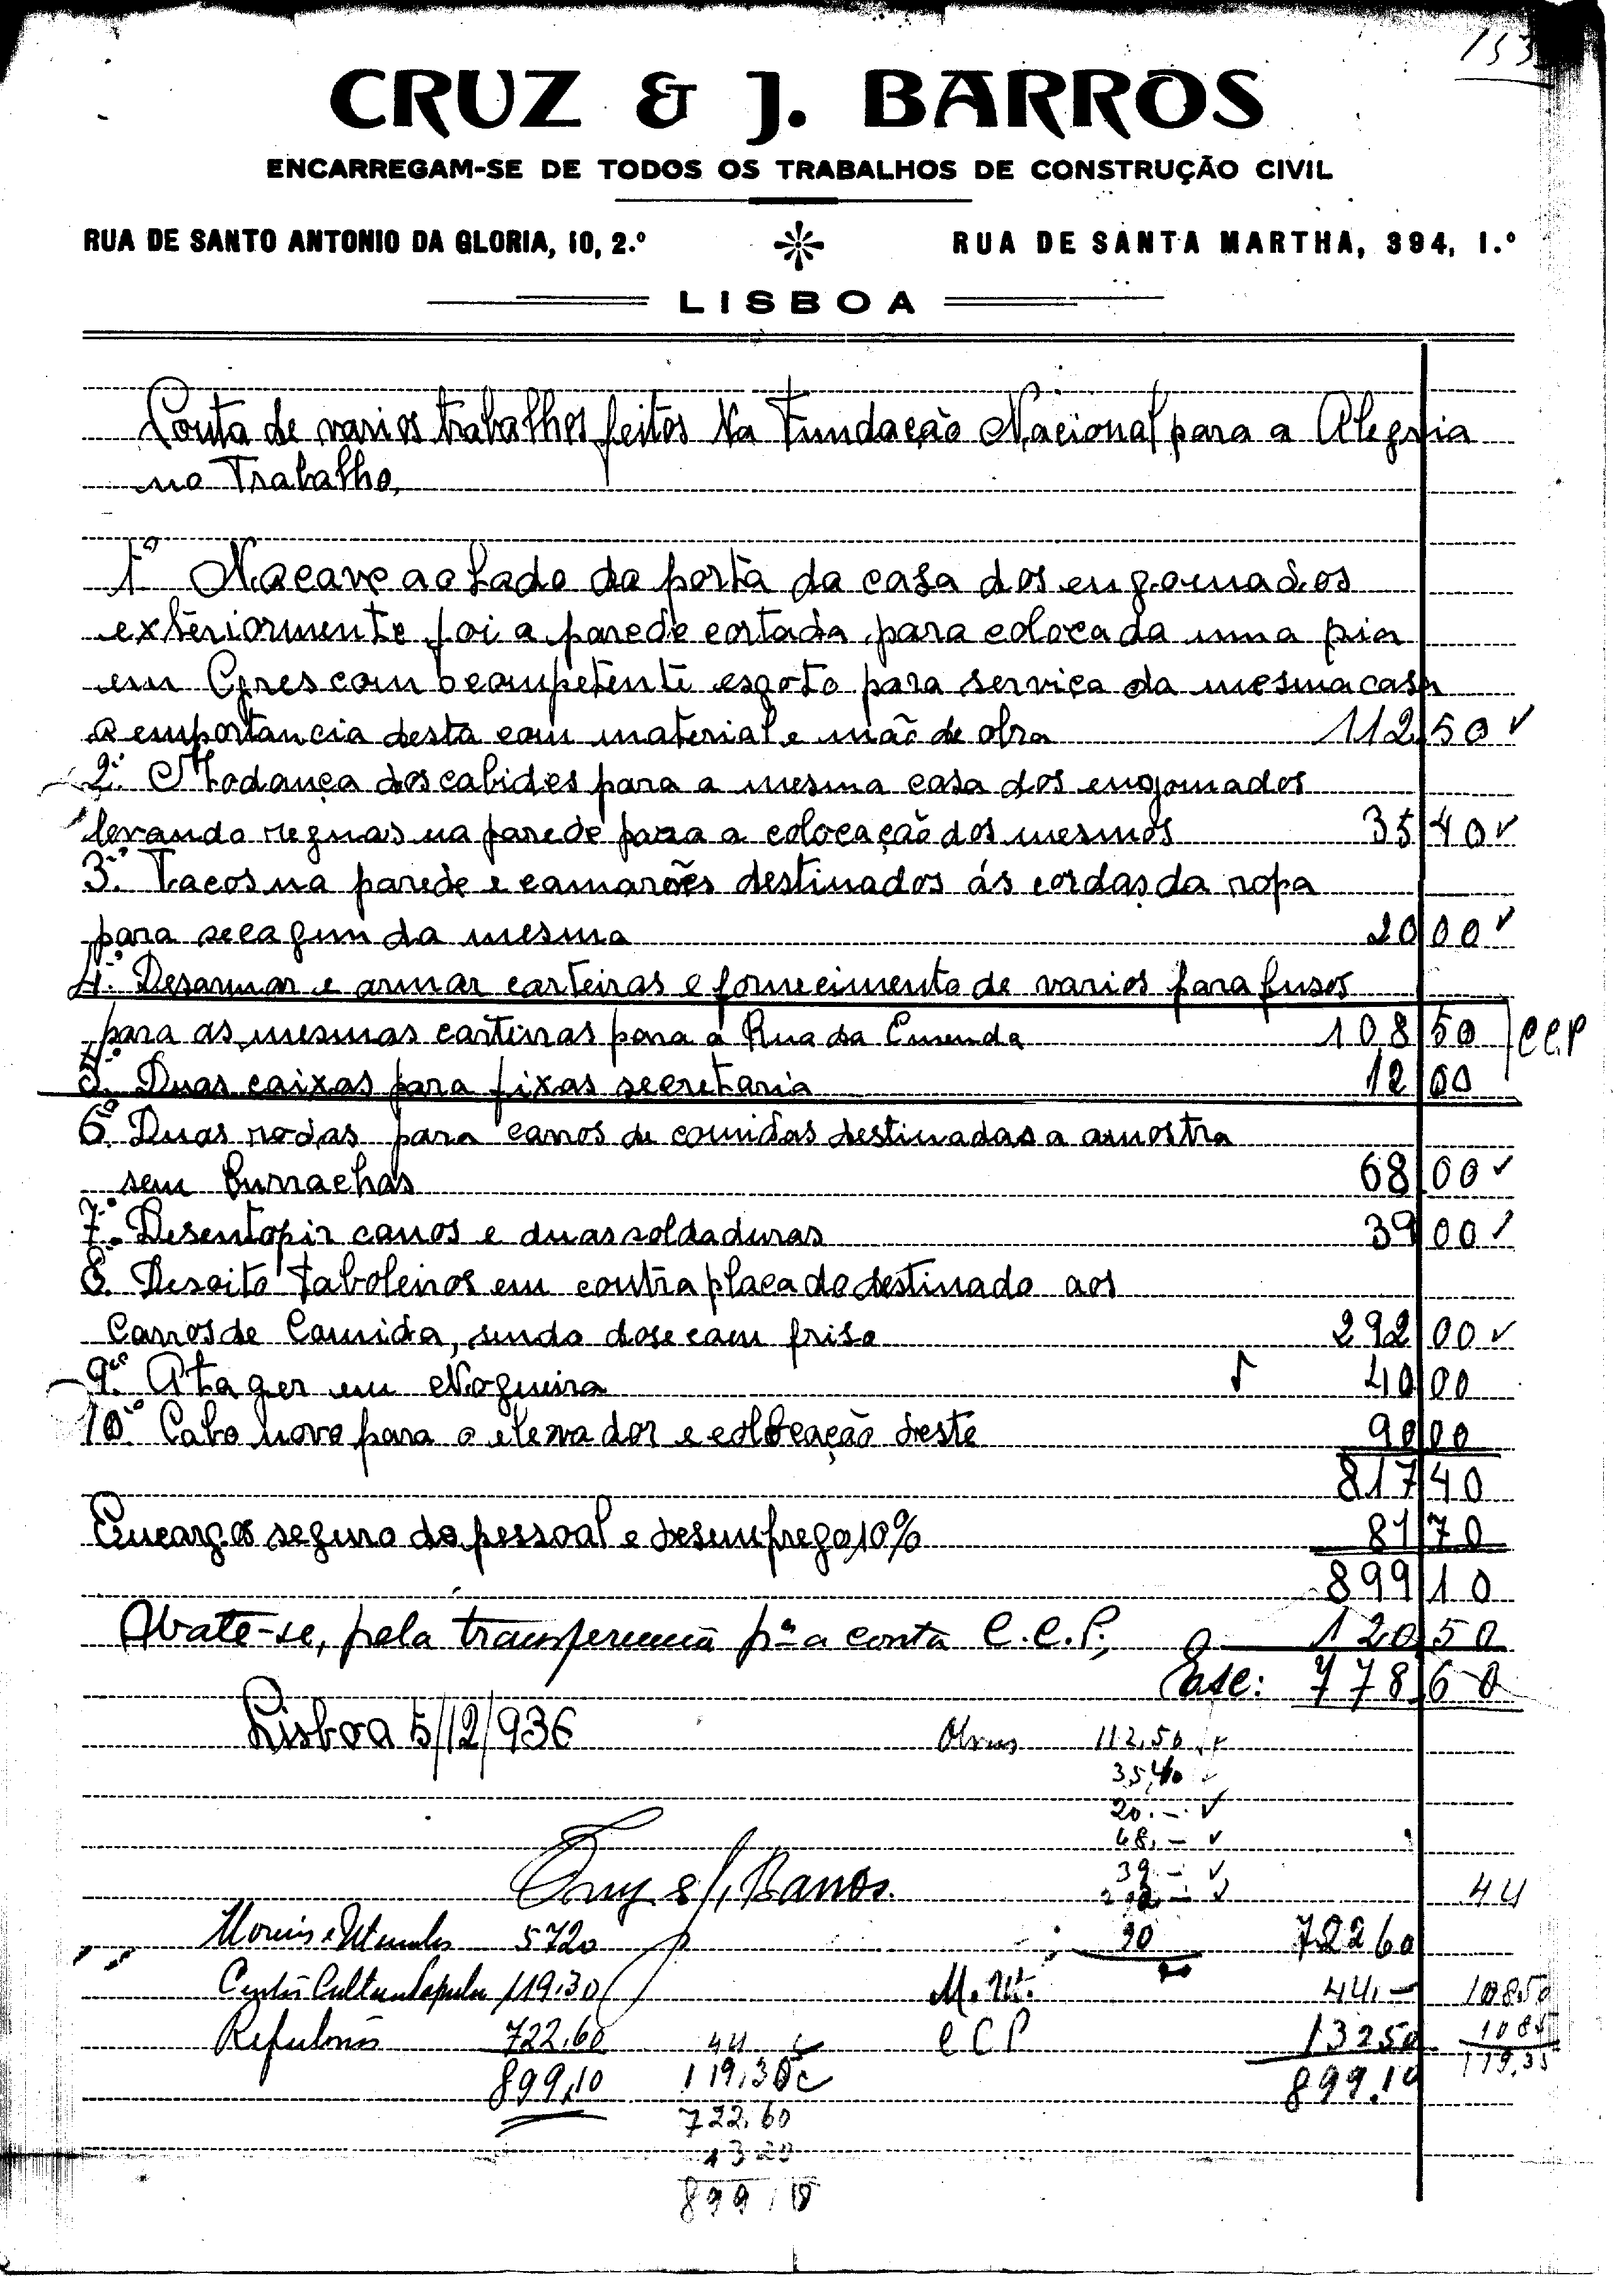 153
CRUZ & J. BARROS
ENCARREGAM-SE DE TODOS OS TRABALHOS DE CONSTRUÇÃO CIVIL
RUA DE SANTO ANTONIO DA GLORIA, 10, 2.º RUA DE SANTA MARTHA, 394, 1.º
LISBOA
Conta de varios trabalhos feitos Na Fundação Nacional para a Alegria
no Trabalho,
1º Na cave ao lado da porta da casa dos engomados
exteriormente foi a parede cortada para colocada uma pia
em Gres com o competente esgoto para serviça da mesma casa
a emportancia desta com material e mão de obra 112 50
2º Modança dos cabides para a mesma casa dos engomados
levando reguas na parede para a colocação dos mesmos 35 40
3º Tacos na parede e camarões destinados ás cordas da ropa
para secagun da mesma 20 00
4º Desarmar e armar carteiras e fornecimento de varios parafusos
para as mesmas carteiras para a Rua da Emenda 108 50 CCP
5º Duas caixas para fixas secretaria 12 00
6º Duas rodas para carros de comidas destinadas a amostra
sem Burrachas 68 00
7º Desentopir canos e duas soldaduras 39 00
8º Desoito taboleiros em contraplacado destinado aos
Carros de Comida, sendo dose com friso 292 00
9º Atager em Nogueira 40 00
10º Cabo novo para o elevador e colocação deste 90 00
817 40
Encargos seguro do pessoal e desemprego 10% 81 70
899 10
Abate-se, pela transferencia pª a conta C.C.P., 120 50
Esc: 778 60
Lisboa 5/12/936
Obras 112,50
35,40
20.—
68,—
39.—
292,—
Cruz & J. Barros 44
Moveis e Utensilos 5720 90 722 60
Centro Cultura Popular 119,30 M. Ut. 44,— 108,50
Refeitorios 722,60 44 CCP 132 50 1085
899,10 119,30 899,10 119,35
722,60
13 20
899,10